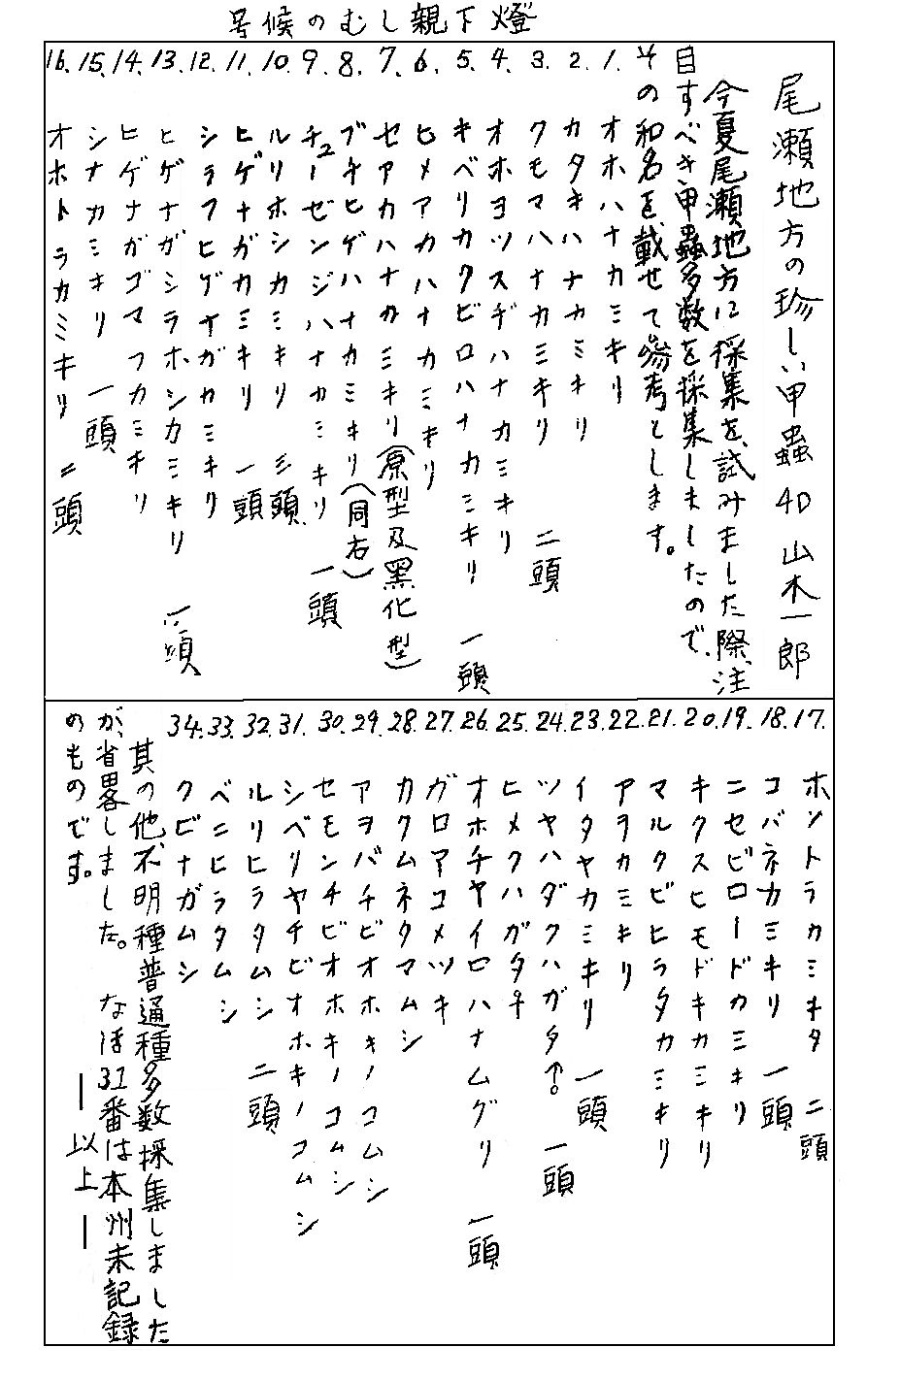 燈下親しむの候号
尾瀬地方の珍しい甲蟲 4D 山木一郎
今夏尾瀬地方に採集を試みました際、注
目すべき甲蟲多数を採集しましたので、
その和名を載せて参考とします。
1. オホハナカミキリ
2. カタキハナカミキリ
3. クモマハナカミキリ 二頭
4. オホヨツスヂハナカミキリ
5. キベリカタビロハナカミキリ 一頭
6. ヒメアカハナカミキリ
7. セアカハナカミキリ(原型及黑化型)
8. ブチヒゲハナカミキリ(同右)
9. チューゼンジハナカミキリ 一頭
10. ルリホシカミキリ 三頭
11. ヒゲナガカミキリ 一頭
12. シラフヒゲナガカミキリ
13. ヒゲナガシラホシカミキリ 一頭
14. ヒゲナガゴマフカミキリ
15. シナカミキリ 一頭
16. オホトラカミキリ 二頭
17. ホソトラカミキタ 二頭
18. コバネカミキリ 一頭
19. ニセビロードカミキリ
20. キクスヒモドキカミキリ
21. マルクビヒラタカミキリ
22. アヲカミキリ
23. イタヤカミキリ 一頭
24. ツヤハダクハガタ ♂ 一頭
25. ヒメクハガタ♀
26. オホチヤイロハナムグリ 一頭
27. ガロアコメツキ
28. カクムネクマムシ
29. アヲバチビオホキノコムシ
30. セモンチビオホキノコムシ
31. シベリヤチビオホキノコムシ
32. ルリヒラタムシ 二頭
33. ベニヒラタムシ
34. クビナガムシ
其の他不明種普通種多数採集しました
が、省畧しました。 なほ31番は本州未記録
のものです。
―以上―